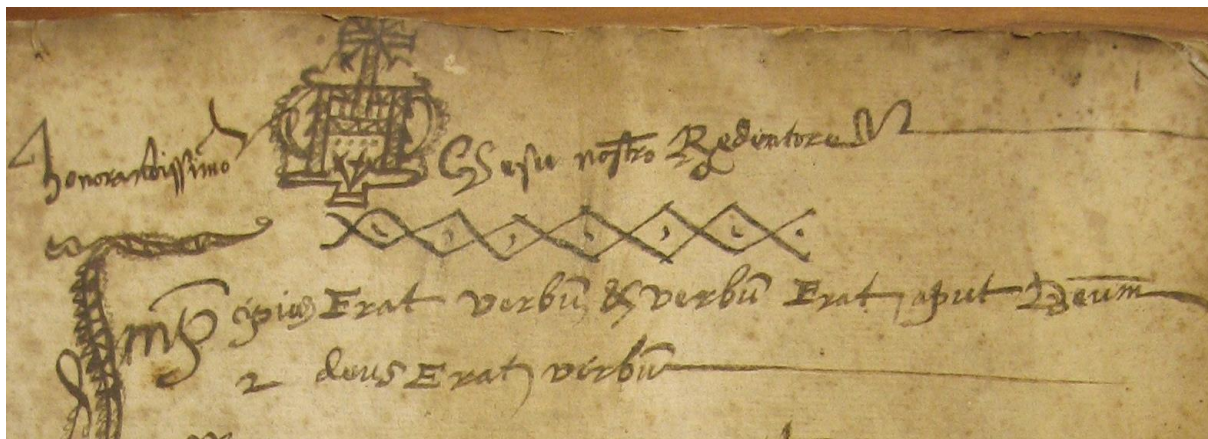 honorandissimo Chesu nostro Redentore
In prĩcipio Erat verbũ & verbũ Erat aput Deum
& deus Erat verbũ